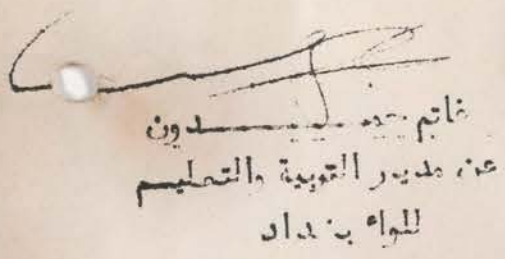 غانم
عن مدير التربية والتعليم
للواء بغداد